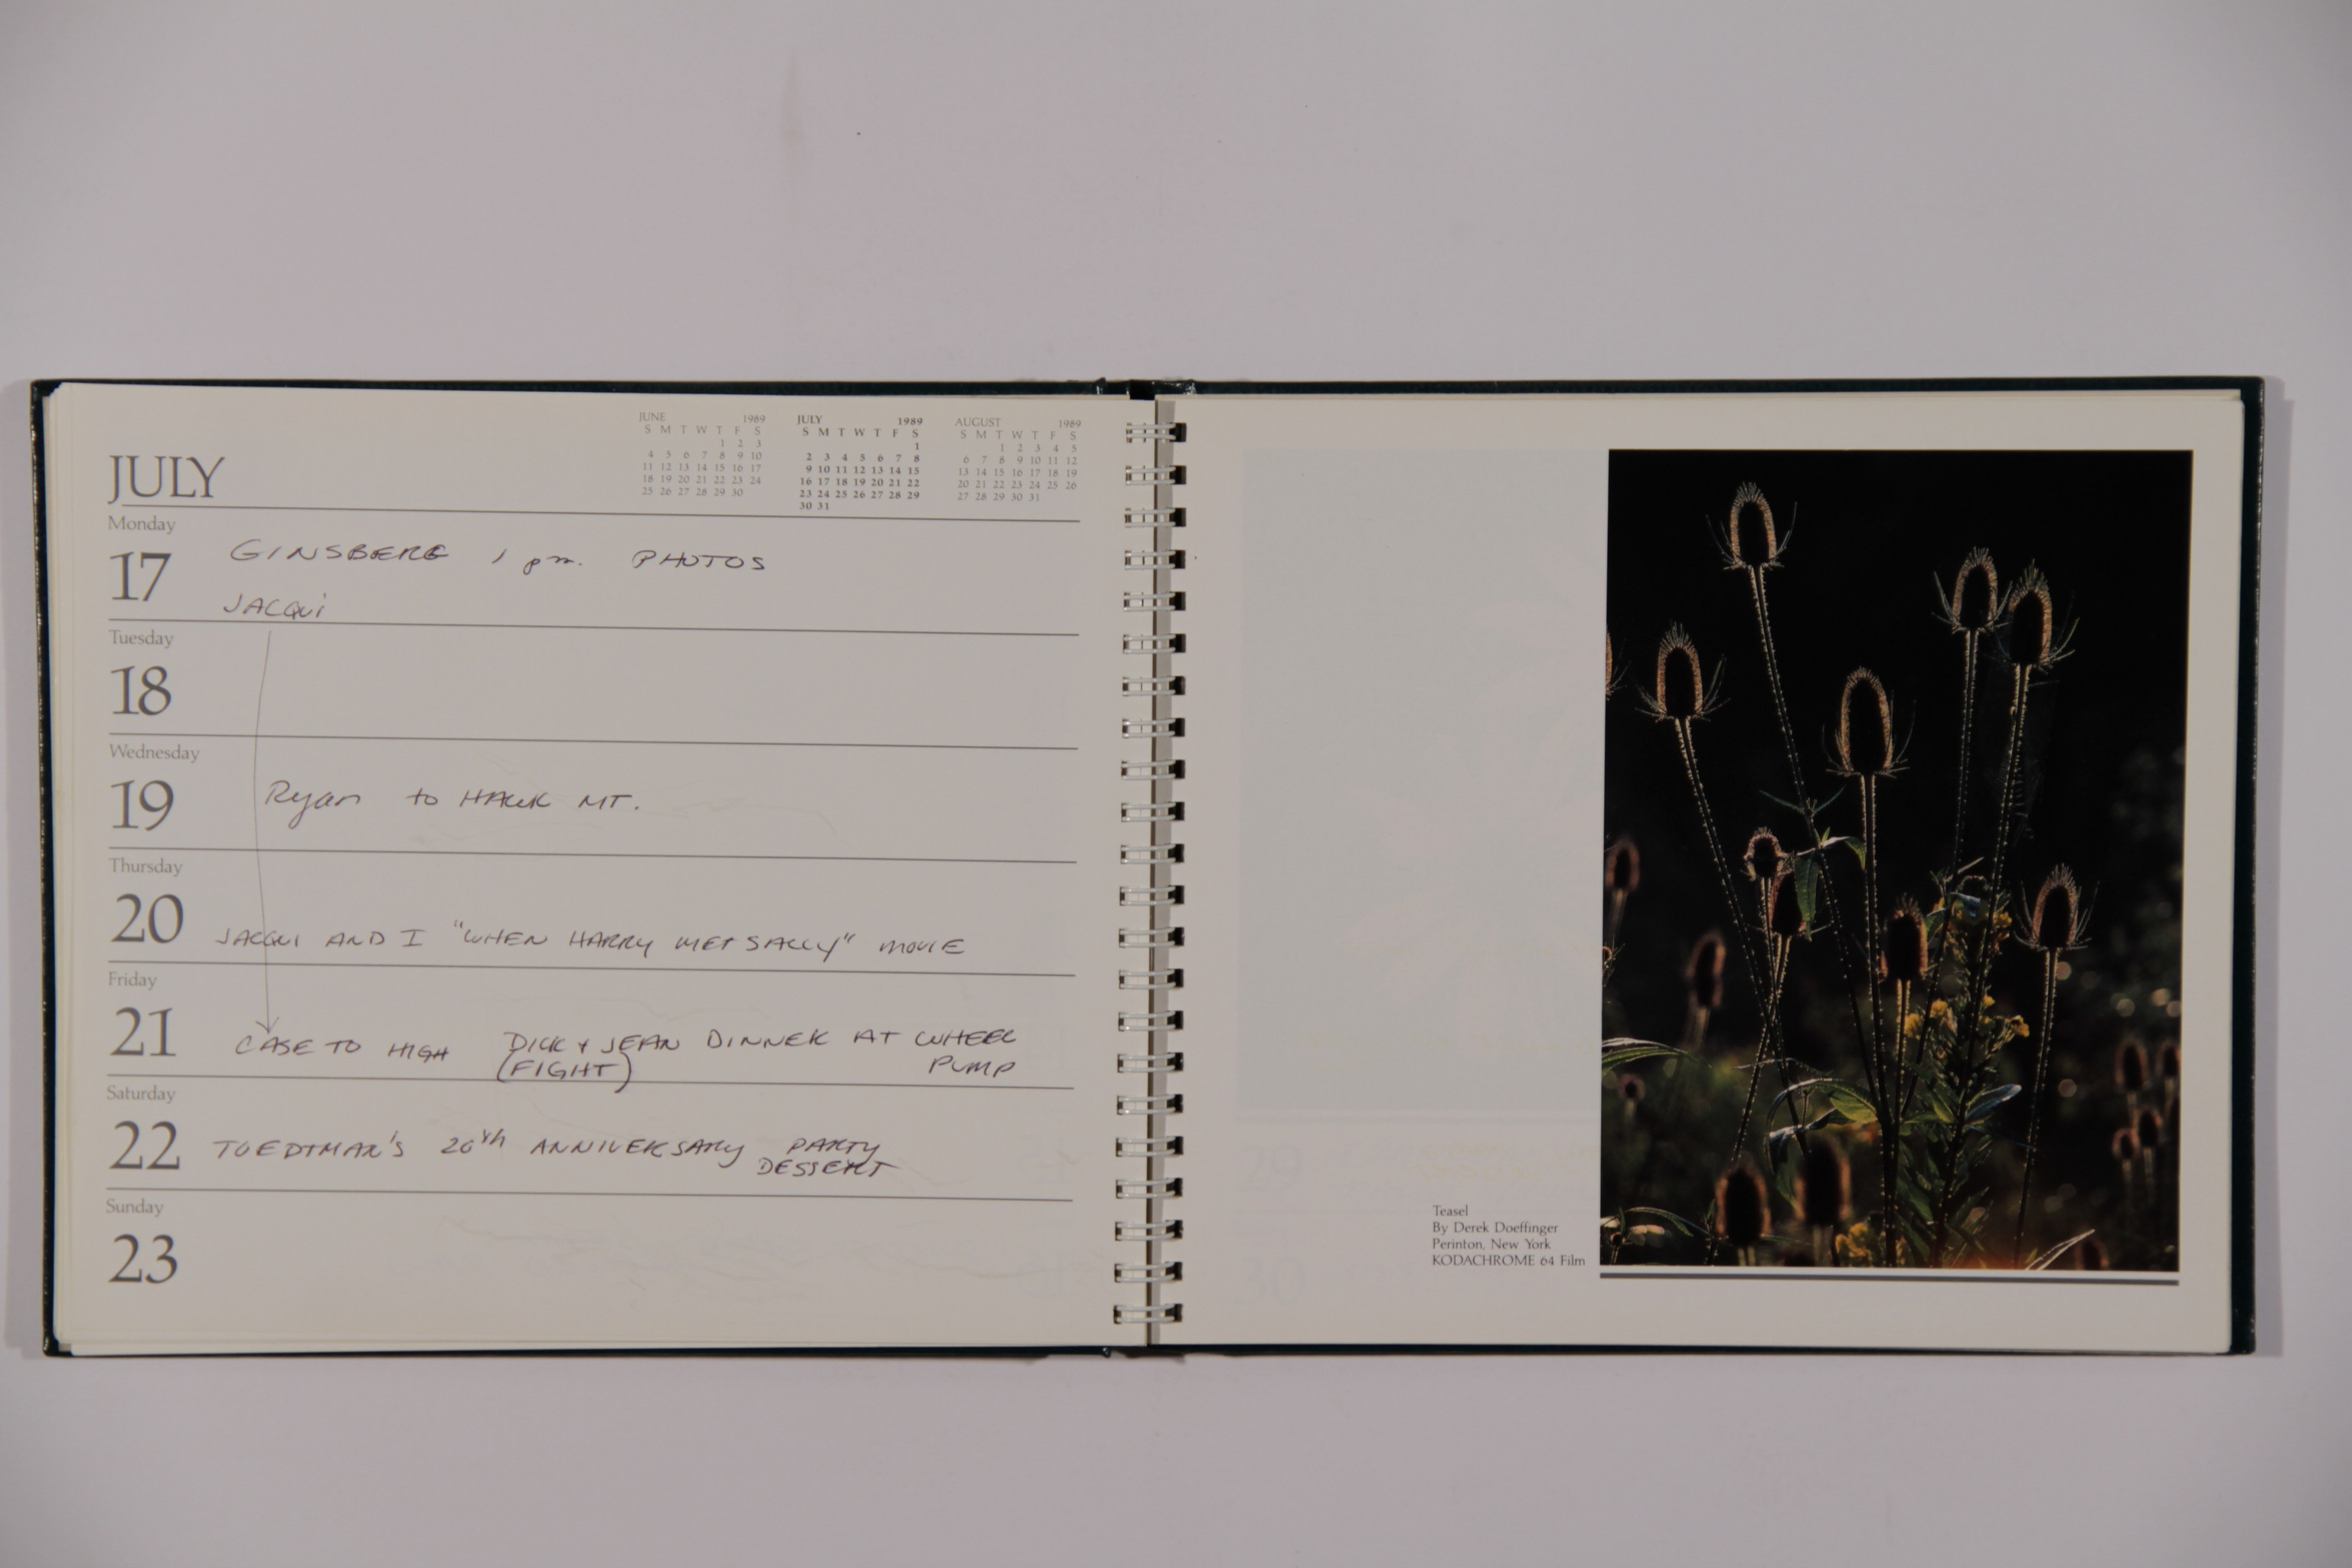 JUNE 1989
S M T W T F S
1 2 3
4 5 6 7 8 9 10
11 12 13 14 15 16 17
18 19 20 21 22 23 24
25 26 27 28 29 30
JULY 1989
S M T W T F S
1
2 3 4 5 6 7 8
9 10 11 12 13 14 15
16 17 18 19 20 21 22
23 24 25 26 27 28 29
30 31
AUGUST 1989
S M T W T F S
1 2 3 4 5
6 7 8 9 10 11 12
13 14 15 16 17 18 19
20 21 22 23 24 25 26
27 28 29 30 31
JULY
Monday
17 GINSBERG 1 pm. PHOTOS
JACQUI
Tuesday
18
Wednesday
19 Ryan to HAWK MT.
Thursday
20 JACQUI AND I "WHEN HARRY MET SALLY" MOVIE
Friday
21 CASE TO HIGH DICK + JEAN DINNER AT WHEEL
(FIGHT) PUMP
Saturday
22 TOEDTMAN'S 20th ANNIVERSARY PARTY
DESSERT
Sunday
23
Teasel
By Derek Doeffinger
Perinton, New York
KODACHROME 64 Film